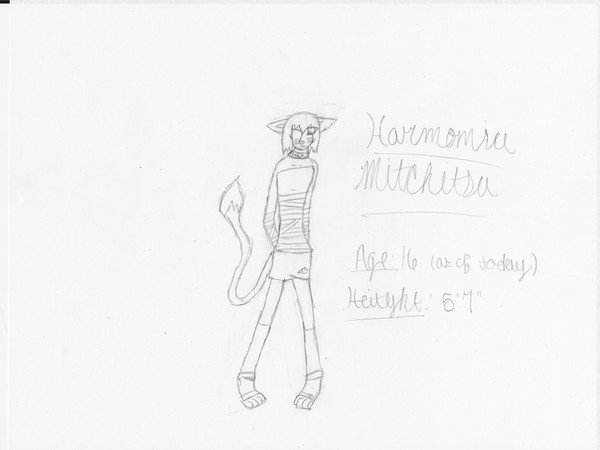 Harmomia
Mitchitsu
Age: 16 (as of today)
Heityht: 5'7"